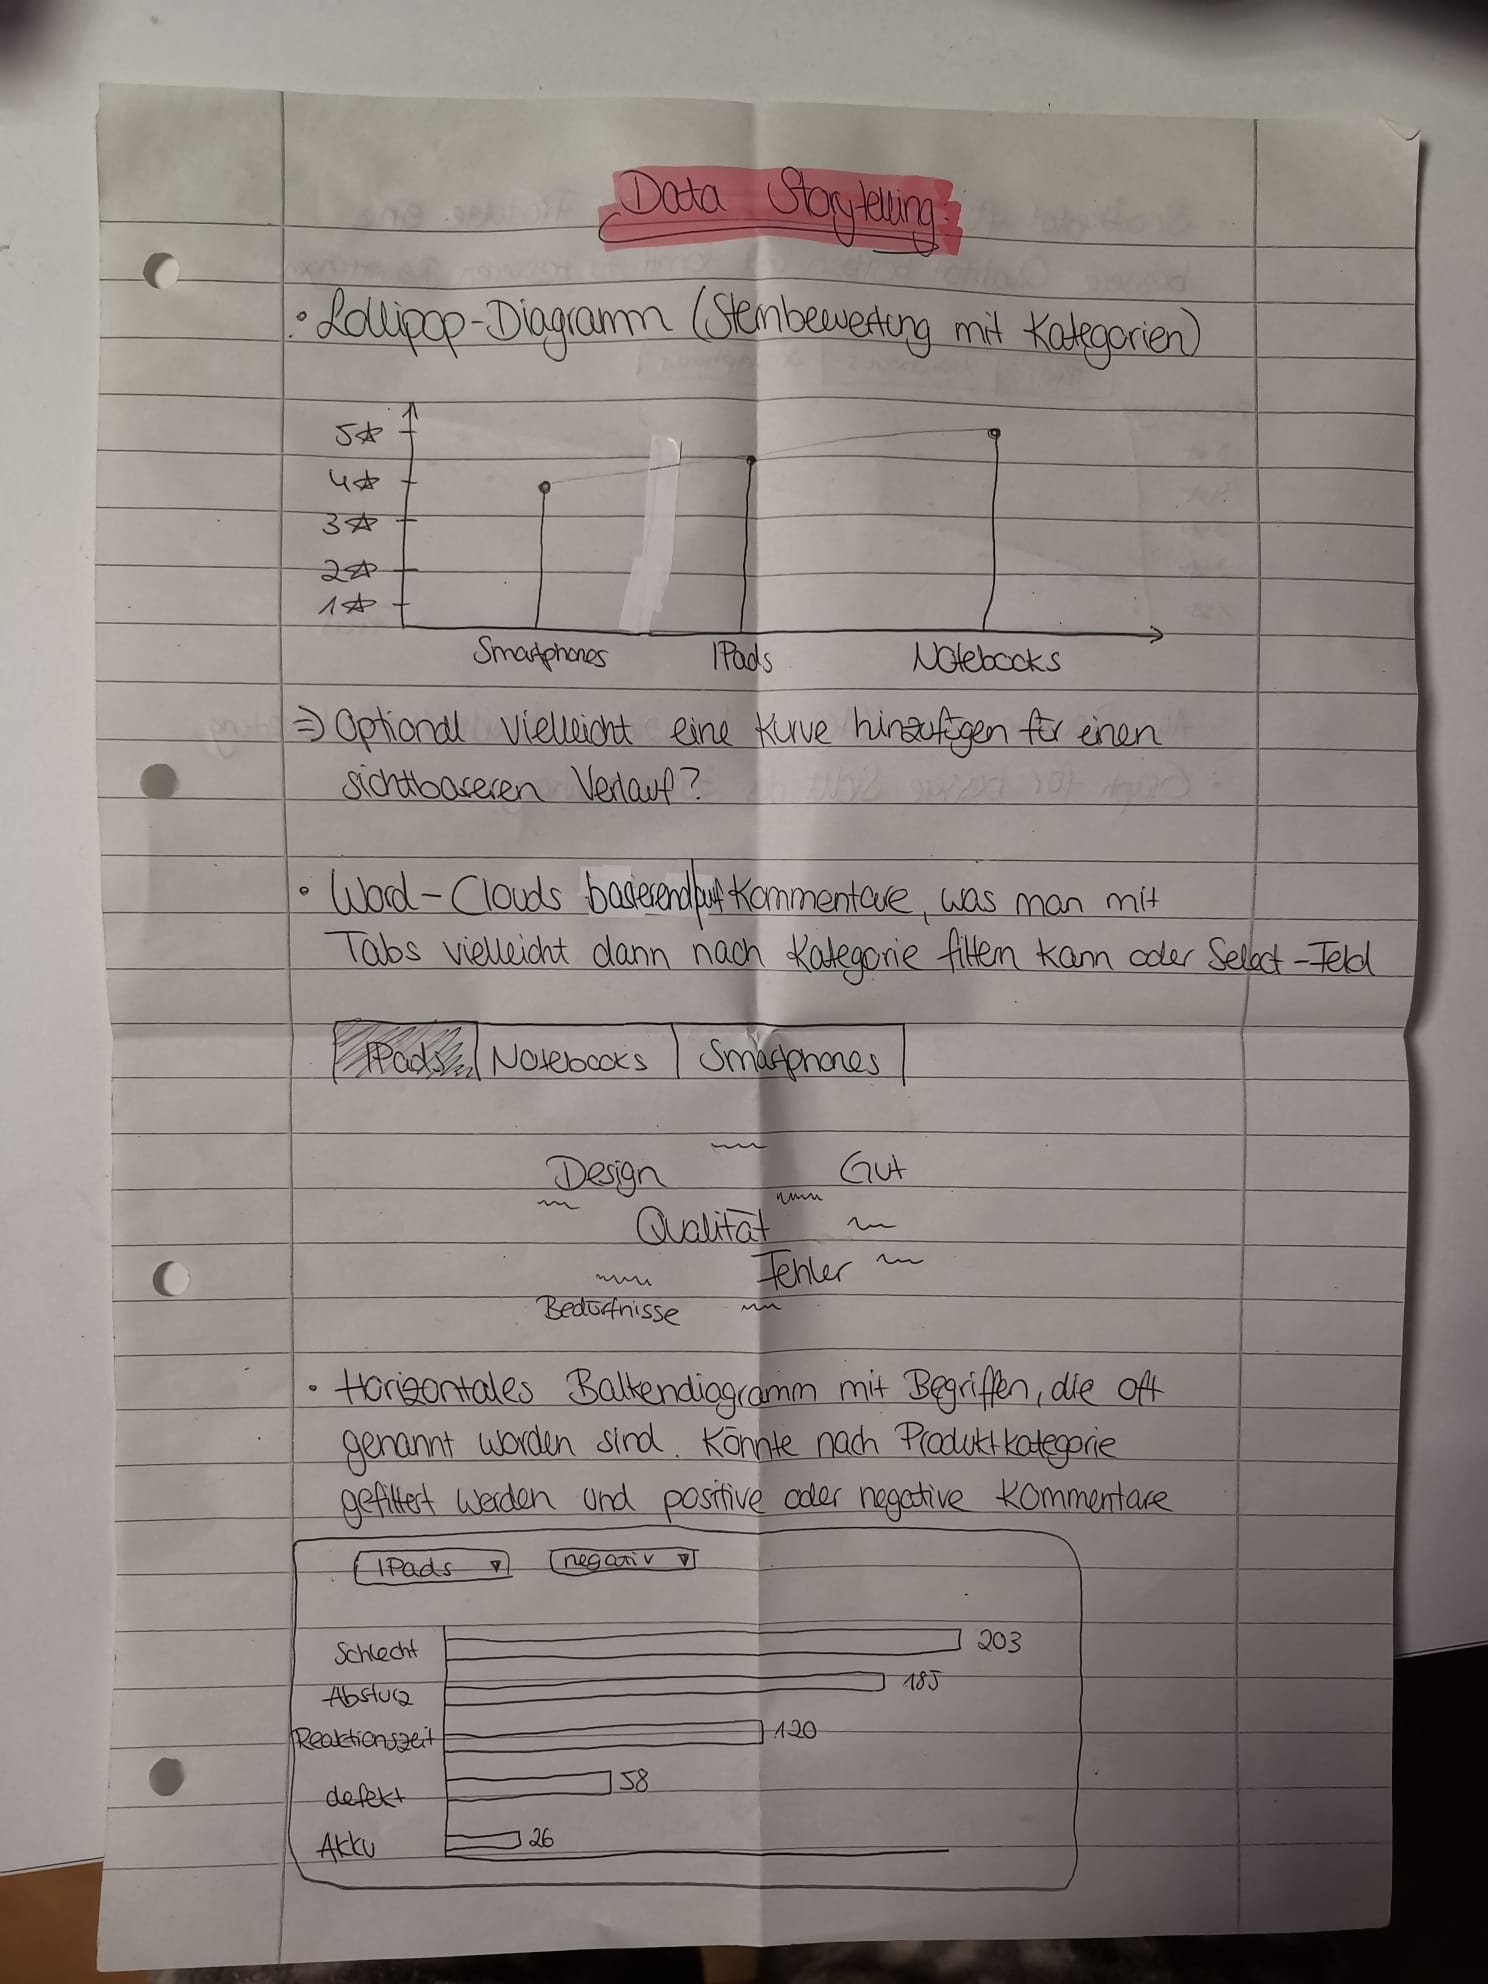 Data Storytelling
• Lollipop-Diagramm (Sternbewertung mit Kategorien)
5☆
4☆
3☆
2☆
1☆
Smartphones IPads Notebooks
⇒ Optional vielleicht eine Kurve hinzufügen für einen
sichtbareren Verlauf?
• Word-Clouds basierend auf Kommentare, was man mit
Tabs vielleicht dann nach Kategorie filtern kann oder Select-Feld
IPads Notebooks Smartphones
Design Gut
Qualität
Fehler
Bedürfnisse
• Horizontales Balkendiagramm mit Begriffen, die oft
genannt worden sind. Könnte nach Produktkategorie
gefiltert werden und positive oder negative Kommentare
IPads ▼ negativ ▼
Schlecht 203
Absturz 185
Reaktionszeit 120
defekt 58
Akku 26